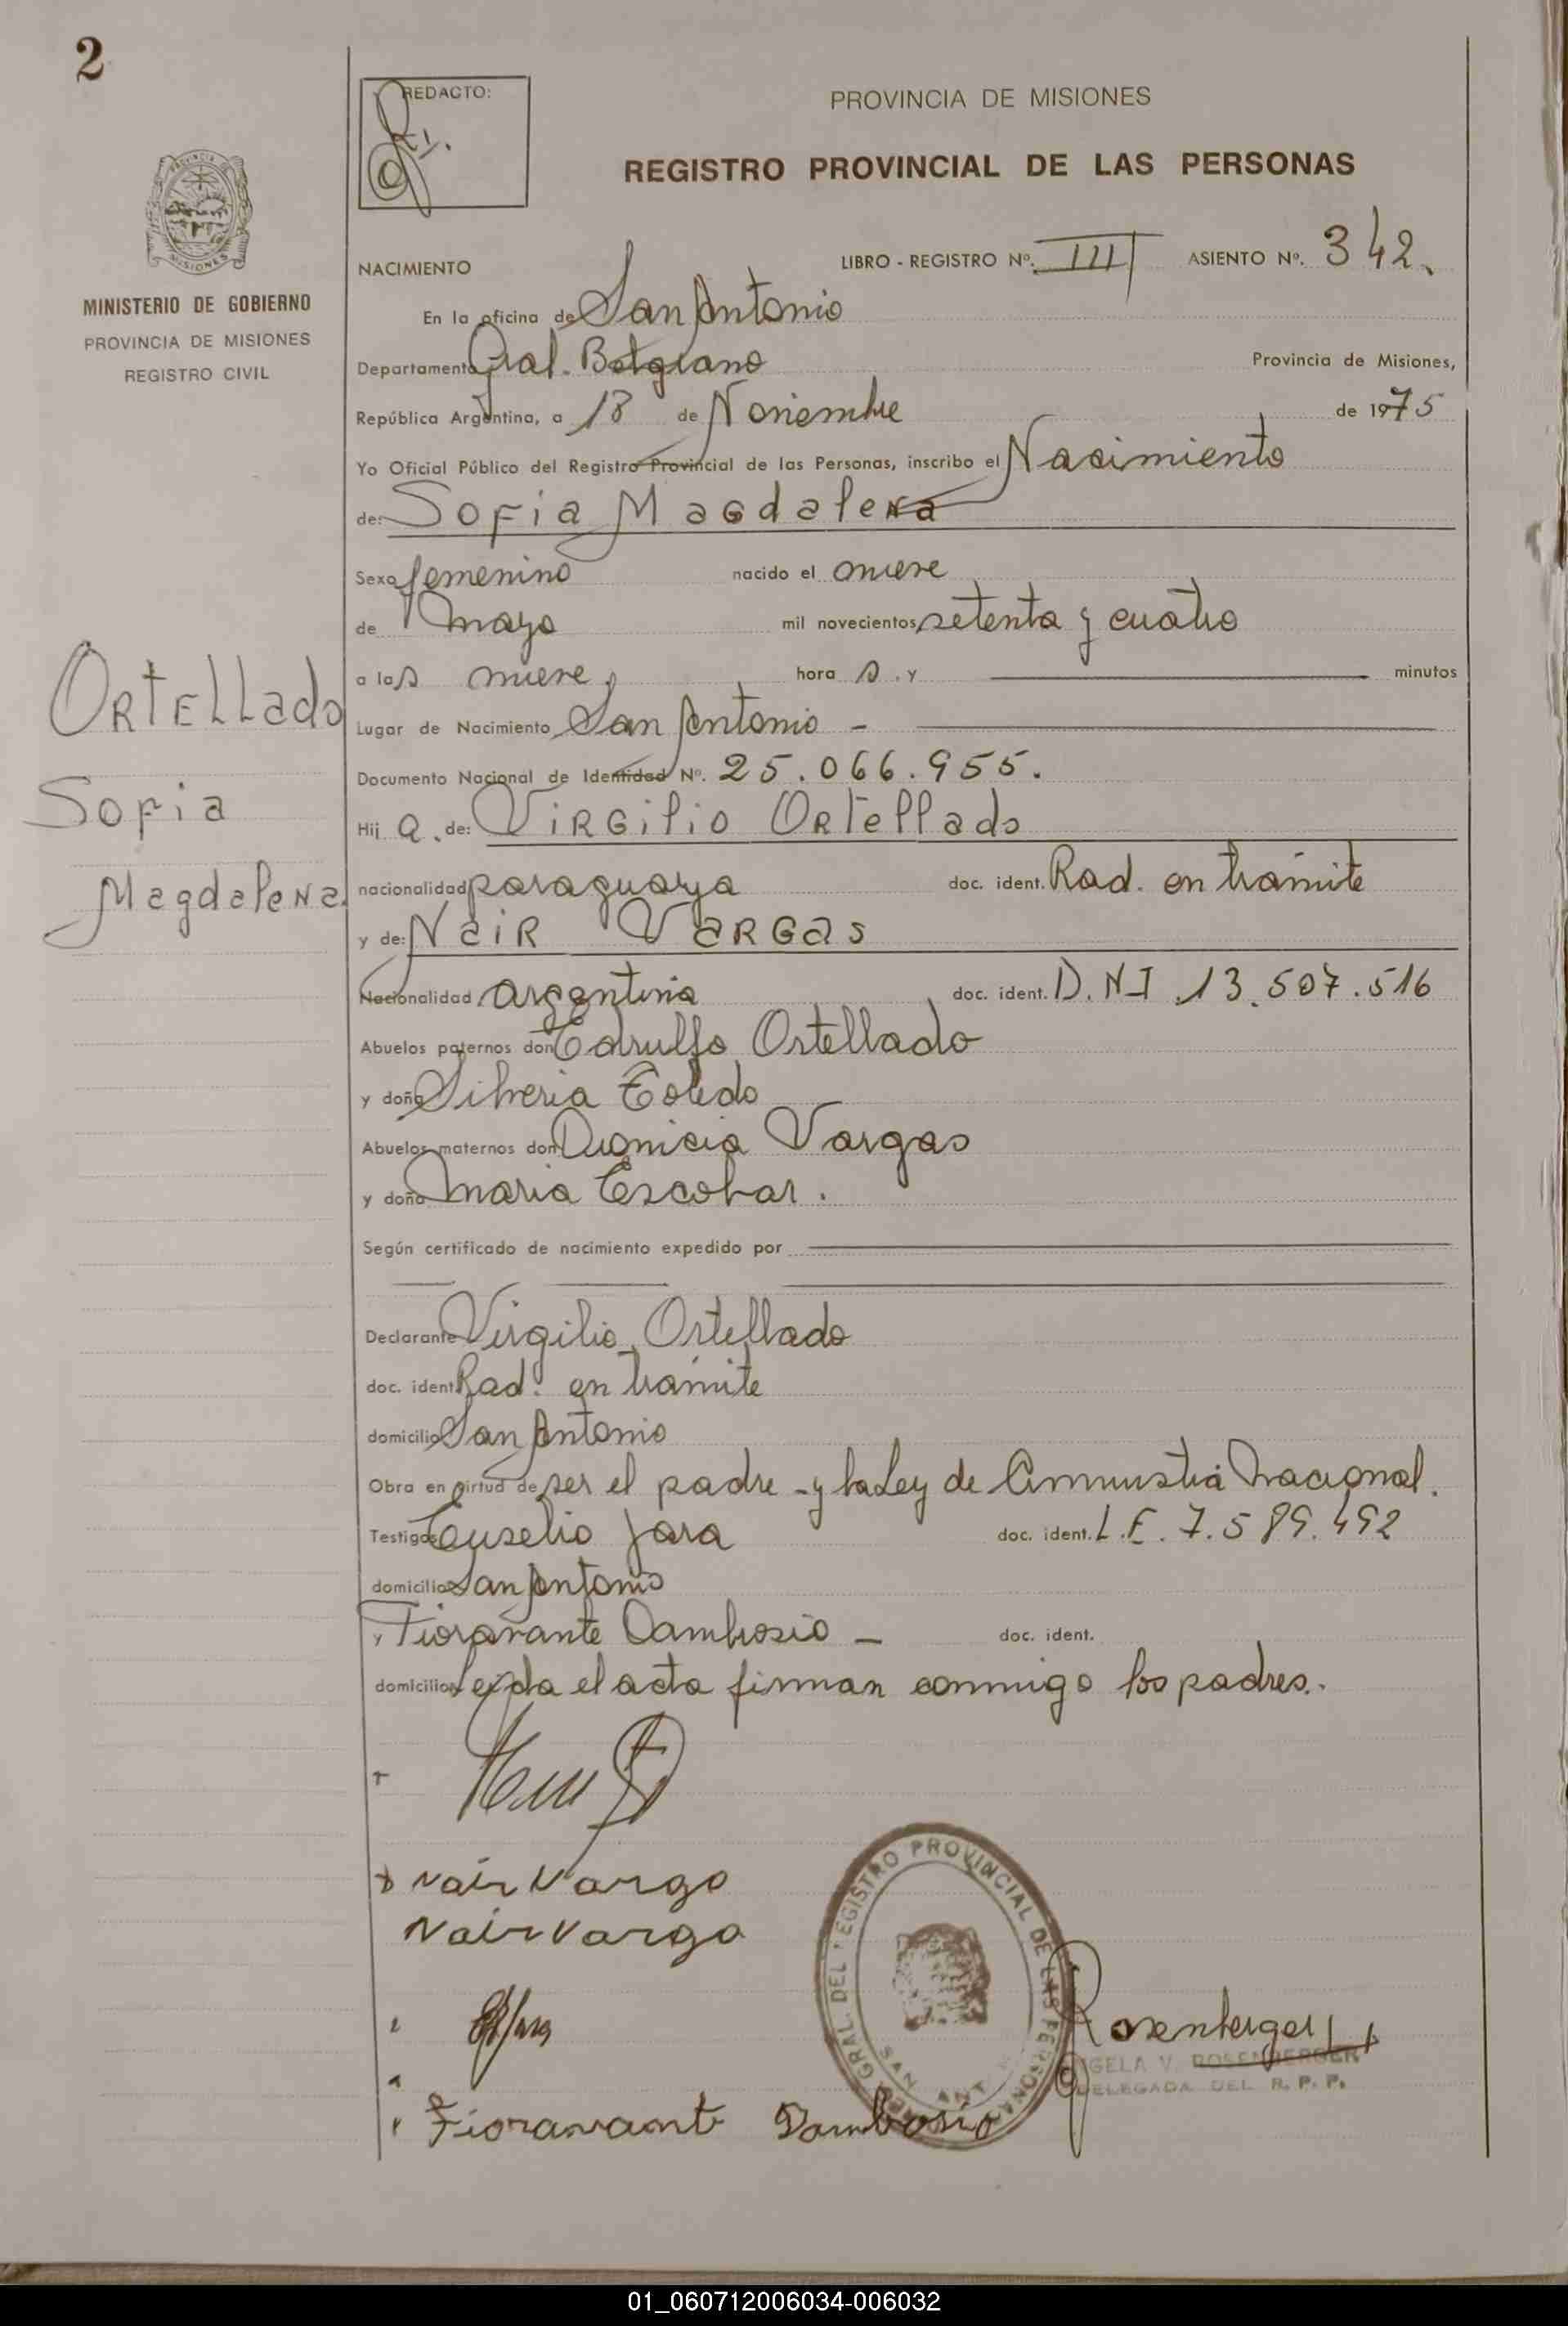 2
REDACTO:
PROVINCIA DE MISIONES
REGISTRO PROVINCIAL DE LAS PERSONAS
MISIONES
MINISTERIO DE GOBIERNO
PROVINCIA DE MISIONES
REGISTRO CIVIL
NACIMIENTO LIBRO - REGISTRO Nº. III ASIENTO Nº. 342.
En la oficina de San Antonio
Departamento Gral. Belgrano Provincia de Misiones,
República Argentina, a 18 de Noviembre de 1975
Yo Oficial Público del Registro Provincial de las Personas, inscribo el Nacimiento
de: Sofia Magdalena
Sexo femenino nacido el nueve
de mayo mil novecientos setenta y cuatro
a las nueve hora s . y minutos
Lugar de Nacimiento San Antonio -
Documento Nacional de Identidad Nº. 25.066.955.
Hij a. de: Virgilio Ortellado
nacionalidad paraguaya doc. ident. Rad. en trámite
y de: Nair Vargas
Nacionalidad argentina doc. ident. D.N.I 13.507.516
Abuelos paternos don Ortellado
y doña Silveria Toledo
Abuelos maternos don Dionicia Vargas
y doña Maria Escobar.
Según certificado de nacimiento expedido por
Declarante Virgilio Ortellado
doc. ident. Rad. en trámite
domicilio San Antonio
Obra en virtud de ser el padre - y la Ley de Amnistia Nacional.
Testigos Euselio Jara doc. ident. L.E. 7.589.492
domicilio San Antonio
y Fioravante Dambrosio - doc. ident.
domicilio Leida el acta firman conmigo los padres.
Ortellado
Sofia
Magdalena
Nair Vargo
Nair Vargo
GRAL. DEL REGISTRO PROVINCIAL DE LAS PERSONAS
SAN ANT
Rosenberger
ANGELA V. ROSENBERGER
DELEGADA DEL R. P. P.
Fioravante Dambrosio
01_060712006034-006032